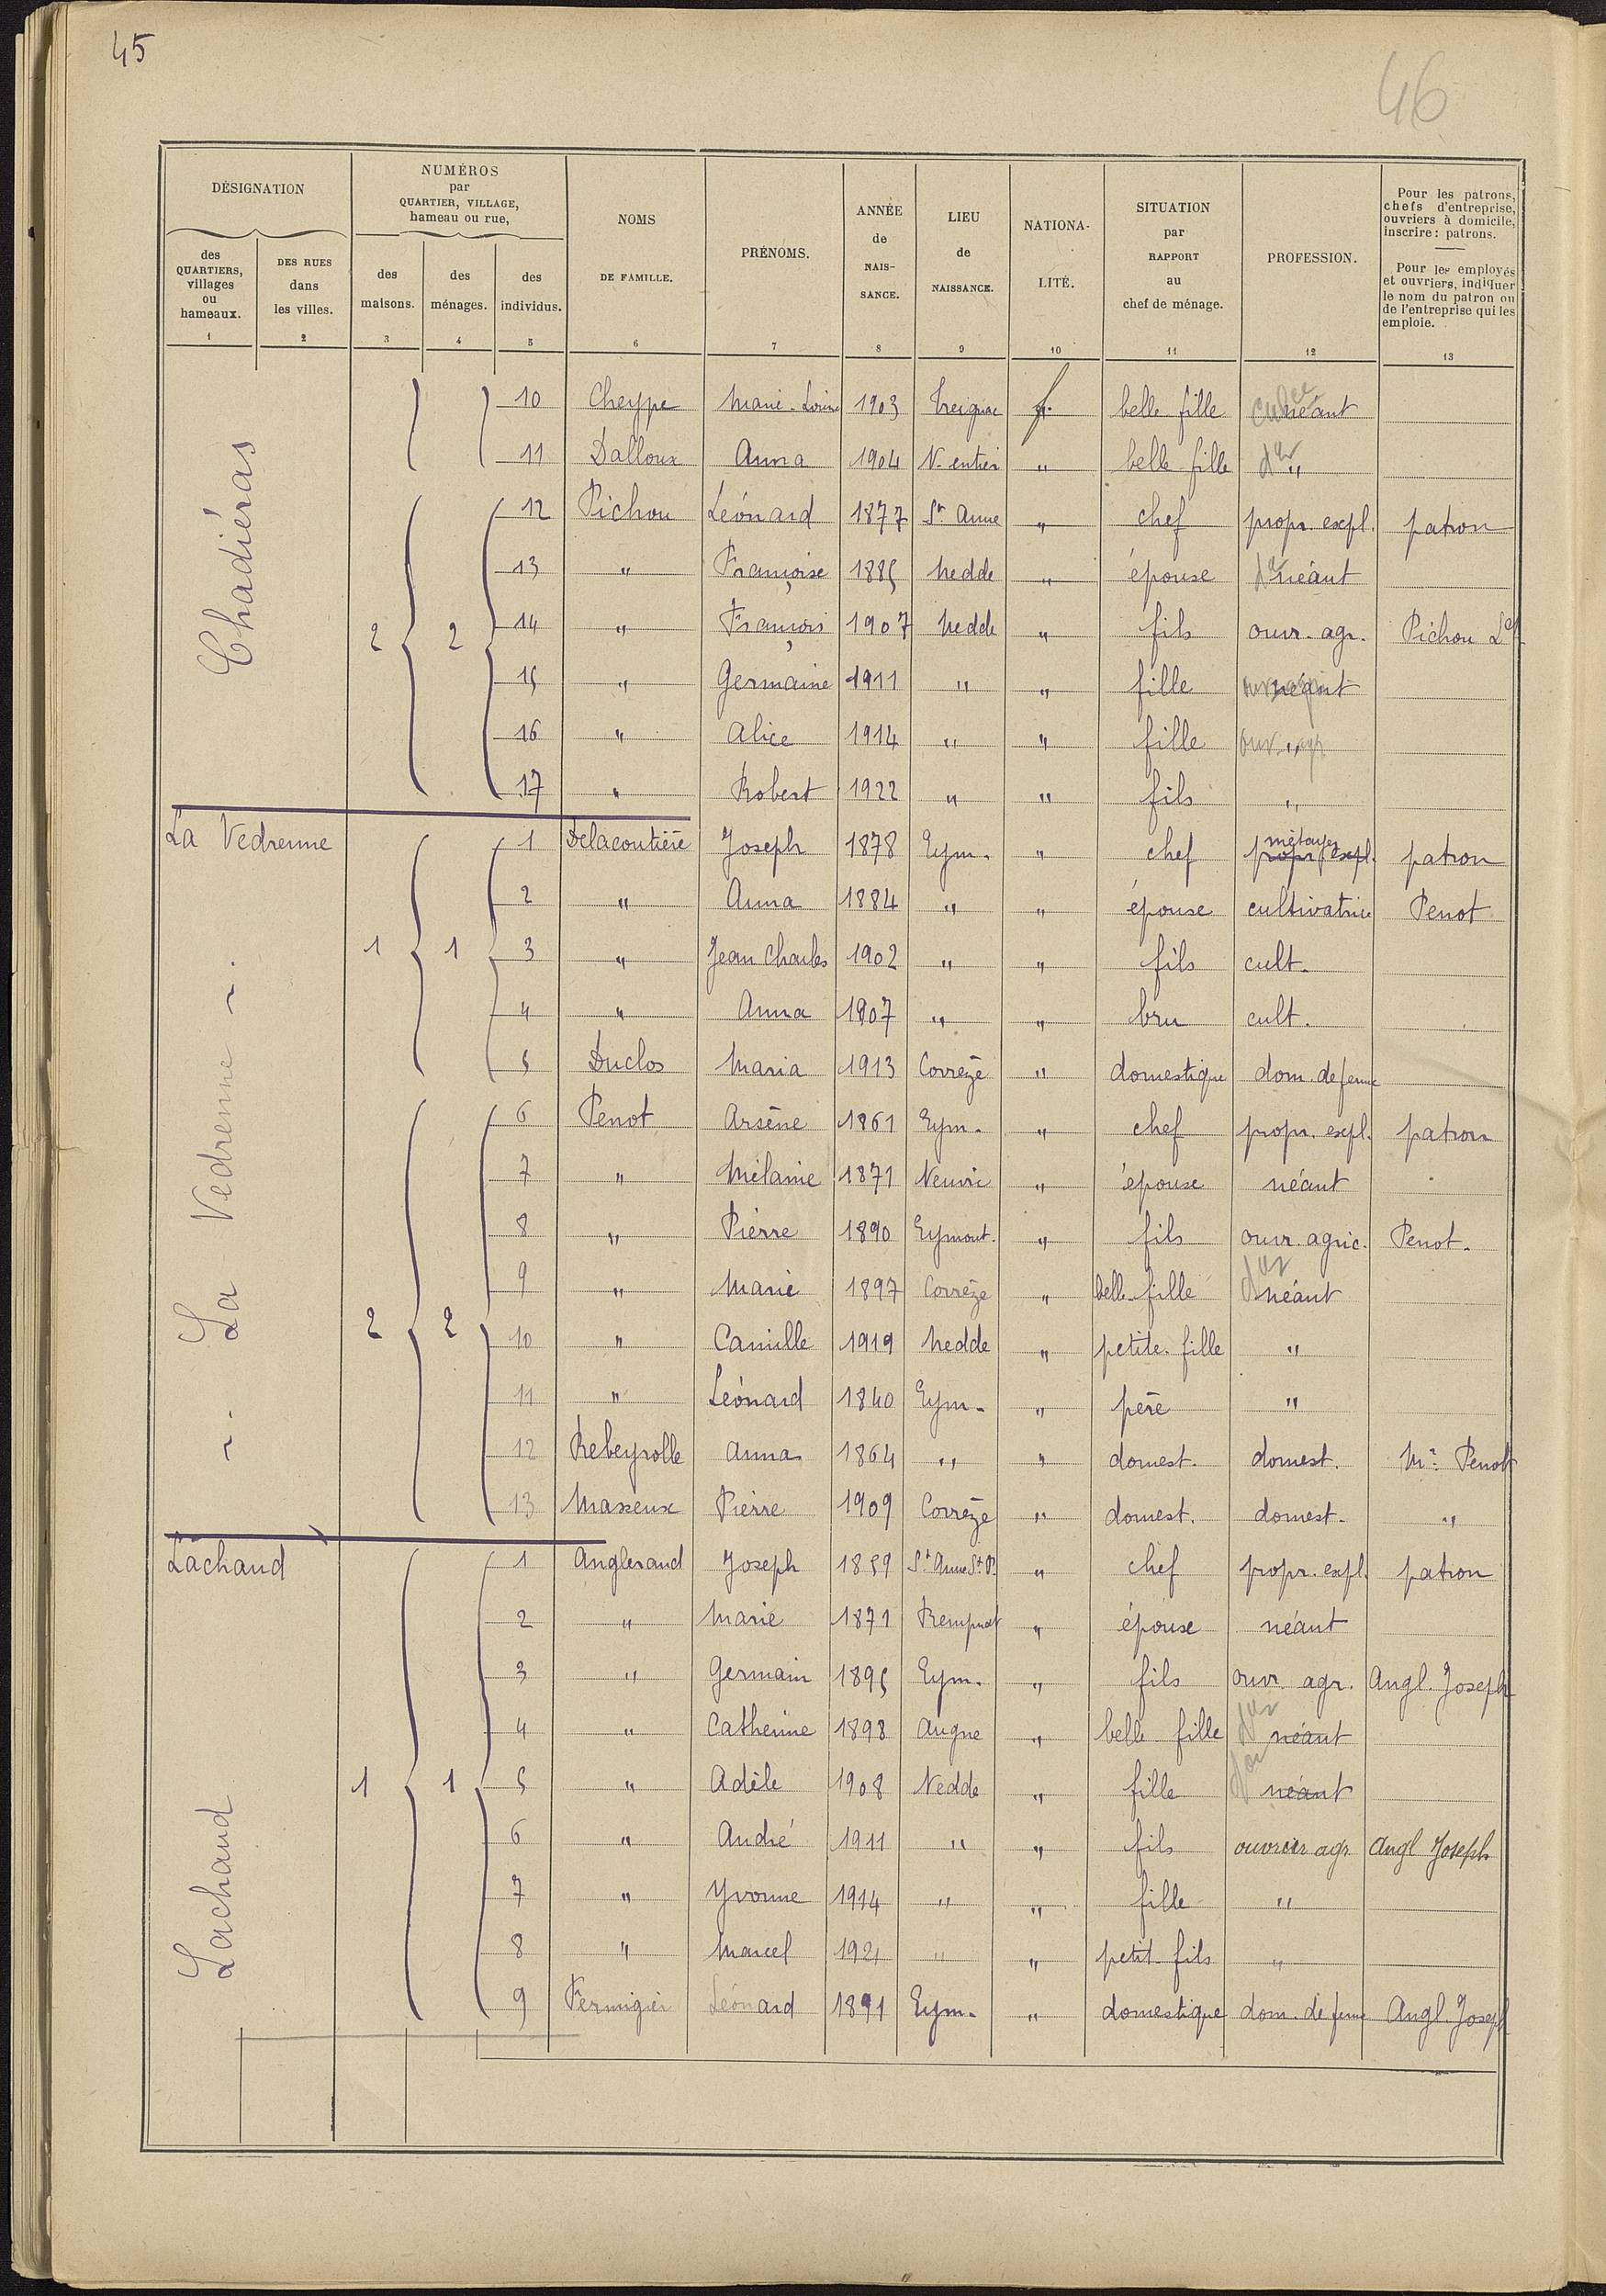 45
46
DÉSIGNATION
NUMÉROS
par
QUARTIER, VILLAGE,
hameau ou rue,
des
QUARTIERS,
villages
ou
hameaux.
DES RUES
dans
les villes.
des
maisons.
des
ménages.
des
individus.
NOMS
DE FAMILLE.
PRÉNOMS.
ANNÉE
de
NAIS-
SANCE.
LIEU
de
NAISSANCE.
NATIONA-
LITÉ.
SITUATION
par
RAPPORT
au
chef de ménage.
PROFESSION.
Pour les patrons,
chefs d'entreprise,
ouvriers à domicile,
inscrire : patrons.
Pour les employés
et ouvriers, indiquer
le nom du patron ou
de l'entreprise qui les
emploie.
1 2 3 4 5 6 7 8 9 10 11 12 13
Chadiéras
10 Cheype Marie-Louise 1903 Treignac f. belle fille néant
11 Dalloux Anna 1904 N. entier " belle fille "
2 2
12 Pichon Léonard 1877 St Anne " chef propr. expl. patron
13 " Françoise 1885 Nedde " épouse néant
14 " François 1907 Nedde " fils ouvr. agr. Pichon Ld
15 " Germaine 1911 " " fille néant
16 " Alice 1914 " " fille ouvr. agr "
17 " Robert 1922 " " fils "
La Vedrenne
La Vedrenne
1 1
1 Delacoutière Joseph 1878 Eym. " chef propr. expl. métayer patron
2 " Anna 1884 " " épouse cultivatrice Penot
3 " Jean Charles 1902 " " fils cult.
4 " Anna 1907 " " bru cult.
5 Duclos Maria 1913 Corrèze " domestique dom. de ferme
2 2
6 Penot Arsène 1861 Eym. " chef propr. expl. patron
7 " Mélanie 1871 Neuvic " épouse néant
8 " Pierre 1890 Eymout. " fils ouvr. agric. Penot.
9 " Marie 1897 Corrèze " belle-fille néant
10 " Camille 1919 Nedde " petite-fille "
11 " Léonard 1840 Eym. " père "
12 Rebeyrolle Anna 1864 " " domest. domest. Mr Penot
13 Masseux Pierre 1909 Corrèze " domest. domest. "
Lachaud
Lachaud
1 1
1 Angleraud Joseph 1859 St Anne St P. " chef propr. expl. patron
2 " Marie 1871 Rempnat " épouse néant
3 " Germain 1895 Eym. " fils ouvr. agr. Angl. Joseph
4 " Catherine 1898 Augne " belle fille néant
5 " Adèle 1908 Nedde " fille néant
6 " André 1911 " " fils ouvrier agr. Angl Joseph
7 " Yvonne 1914 " " fille "
8 " Marcel 1921 " " petit-fils "
9 Fermigier Léonard 1891 Eym. " domestique dom. de ferme Angl. Joseph